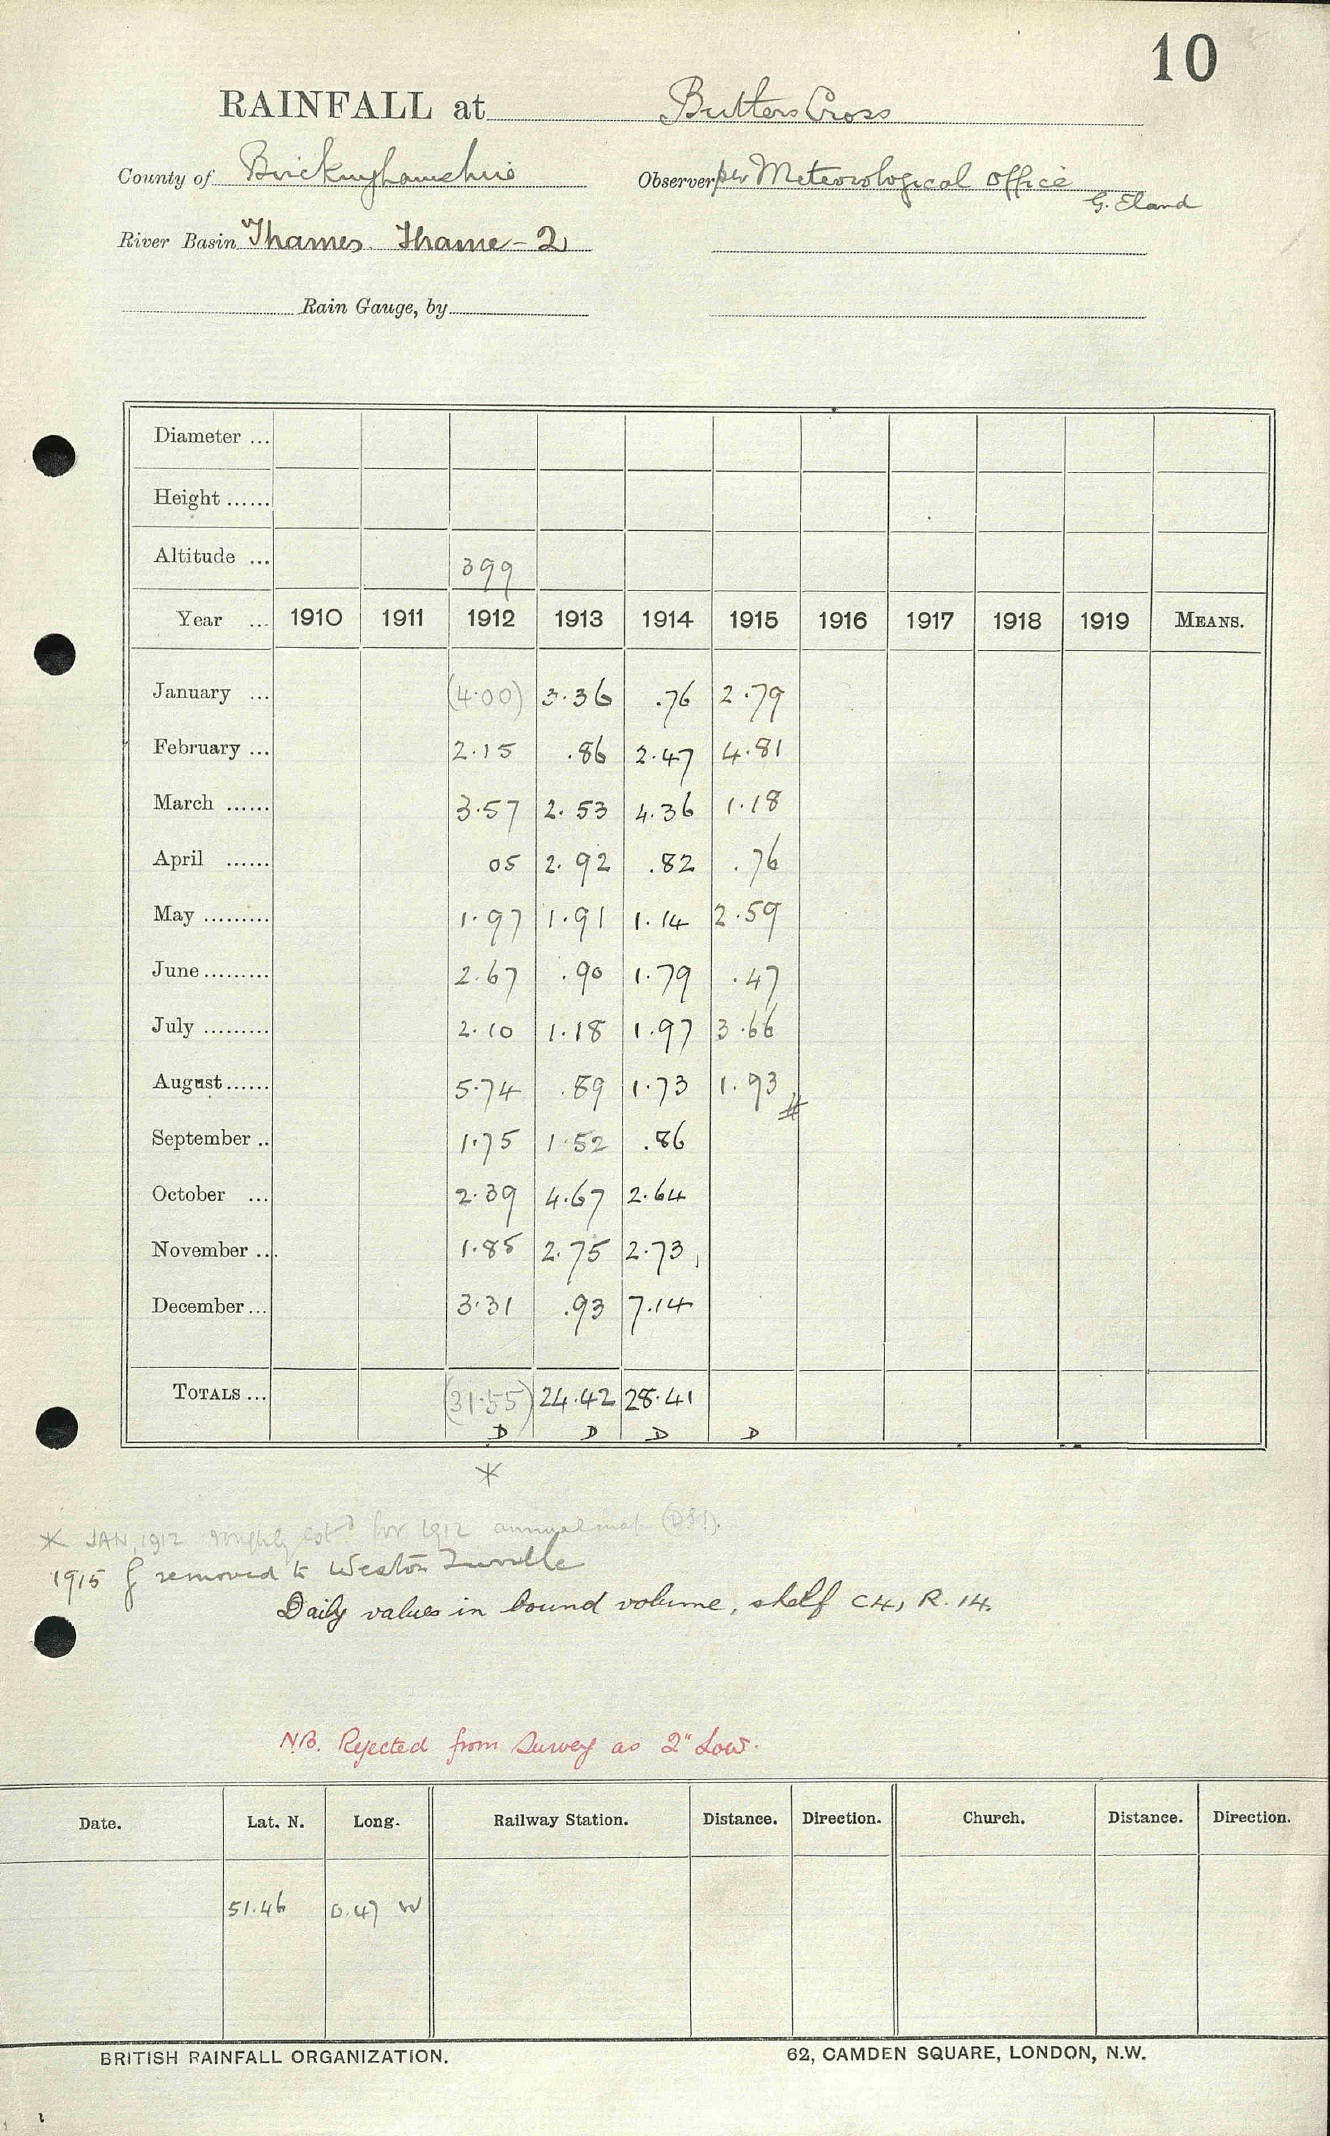 10
RAINFALL at Butlers Cross
County of Buckinghamshire Observer per Meteorological Office
G. Eland
River Basin Thames Thame-2
Rain Gauge, by
Diameter ...
Height ......
Altitude ... 399
Year ... 1910 1911 1912 1913 1914 1915 1916 1917 1918 1919 MEANS.
January ... (4.00) 3.36 .76 2.79
February ... 2.15 .86 2.47 4.81
March ...... 3.57 2.53 4.36 1.18
April ...... 05 2.92 .82 .76
May ......... 1.97 1.91 1.14 2.59
June ......... 2.67 .90 1.79 .47
July ......... 2.10 1.18 1.97 3.66
August ...... 5.74 .89 1.73 1.93 #
September .. 1.75 1.52 .86
October ... 2.39 4.67 2.64
November ... 1.85 2.75 2.73
December ... 3.31 .93 7.14
TOTALS ... (31.55) 24.42 28.41
D D D D
*
* JAN, 1912 roughly estd for 1912 annual map
1915 g removed to Weston Turville
Daily values in bound volume, shelf C4, R.14.
N.B. Rejected from Survey as 2" Low.
Date. Lat. N. Long. Railway Station. Distance. Direction. Church. Distance. Direction.
51.46 0.47 W
BRITISH RAINFALL ORGANIZATION. 62, CAMDEN SQUARE, LONDON, N.W.